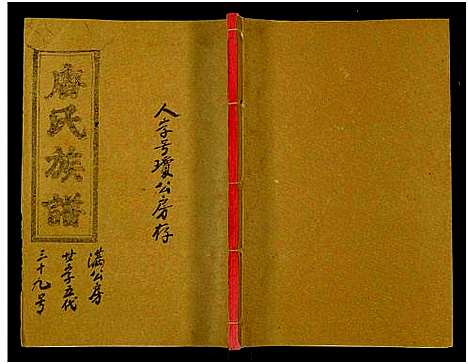 人字号瓊公房存
满公房
廿五代
三十九号
唐氏族譜